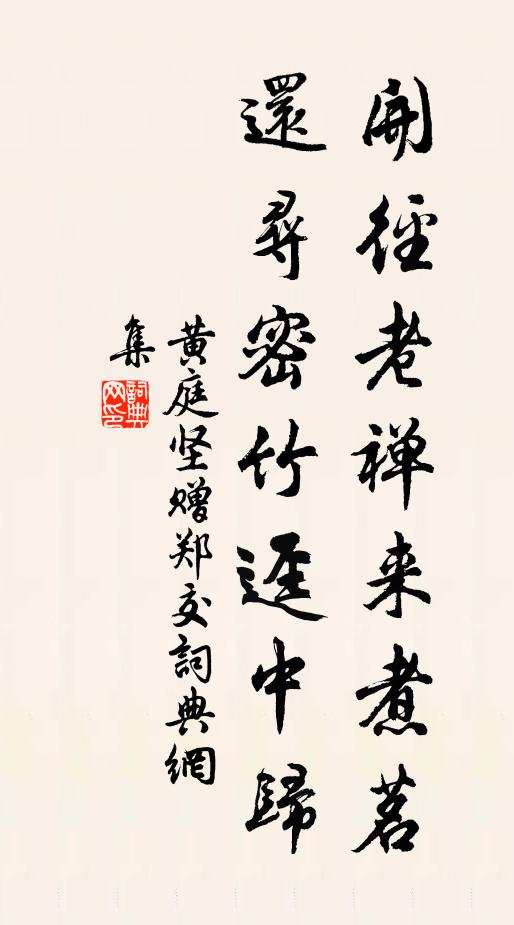 開徑老禅来煮茗
還尋密竹逕中歸
黄庭坚赠郑交詞典網
集
詞典
网印